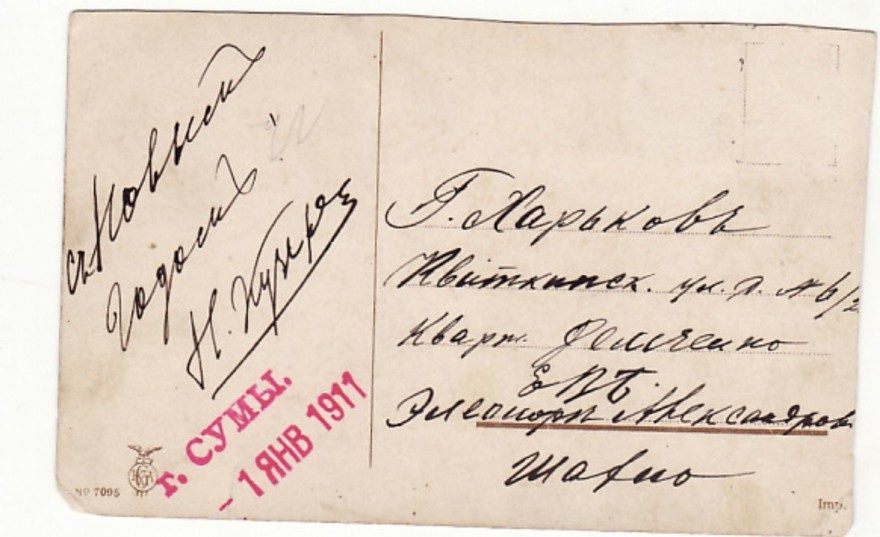 съ Новымъ
Годомъ
Н.
г. СУМЫ.
- 1 ЯНВ 1911
№ 7095
Г. Харьковъ
Квиткинск. ул. д. № 6/2
Кварт. Демченко
Е В П.
Элеоноръ Александров
Шатио
Imp.